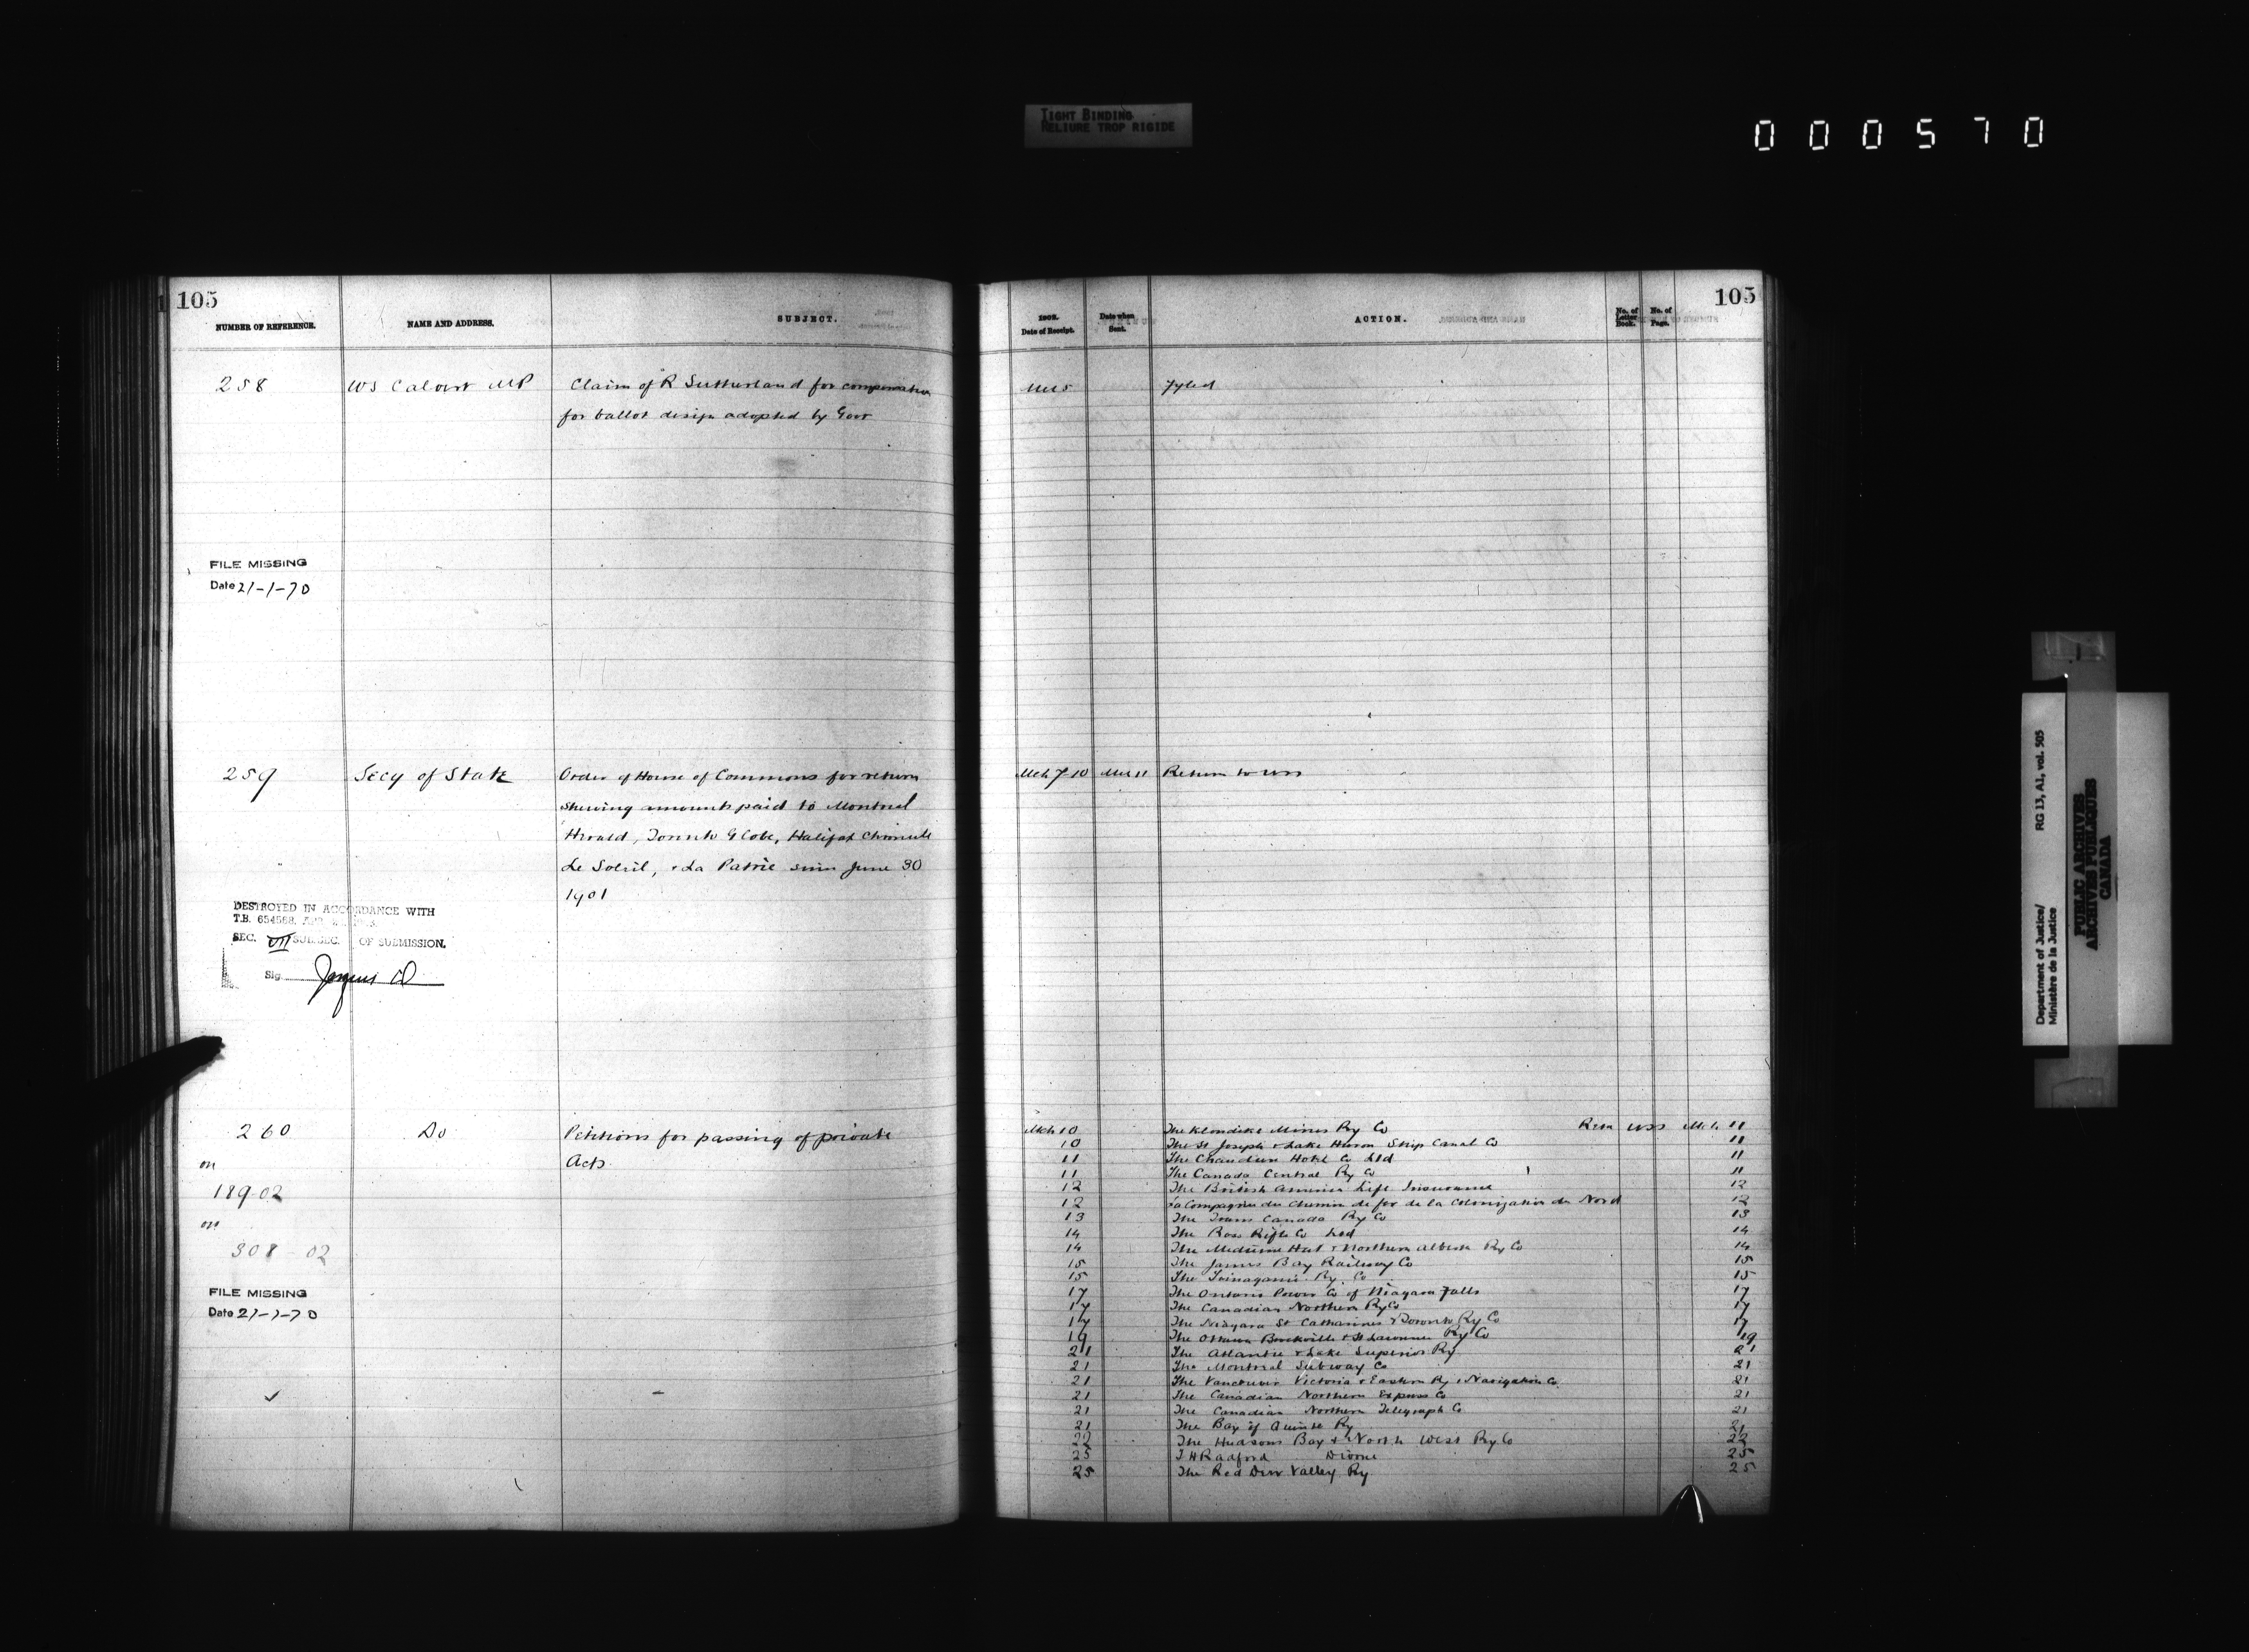 TIGHT BINDING
RELIURE TROP RIGIDE
000570
105
NUMBER OF REFERENCE.
NAME AND ADDRESS.
SUBJECT.
258
WS Calvert MP
Claim of R Sutherland for compensation
for ballot design adopted by Govt
FILE MISSING
Date 21-1-70
259
Secy of State
Order of House of Commons for return
shewing amounts paid to Montreal
Herald, Toronto Globe, Halifax Chronicle
Le Soleil, & La Patrie since June 30
1901
DESTROYED IN ACCORDANCE WITH
T.B. 654568
SEC. VII SUB.SEC. OF SUBMISSION.
Sig
260
Do
Petitions for passing of private
Acts
on
189-02
on
308-02
FILE MISSING
Date 21-1-70
105
1902.
Date of Receipt.
Date when
Sent.
ACTION.
No. of
Letter
Book.
No. of
Page.
Mch 5
Fyled
Mch 7-10 Mch 11 Return to USS
Mch 10 The Klondike Mines Ry Co Retn USS Mch 11
10 The St Joseph & Lake Huron Ship Canal Co 11
11 The Chaudiere Hotel Co Ltd 11
11 The Canada Central Ry Co 11
12 The British America Life Insurance 12
12 La Compagnie du Chemin de fer de la Colonization du Nord 12
13 The Trans Canada Ry Co 13
14 The Ross Rifle Co Ltd 14
14 The Medicine Hat & Northern Alberta Ry Co 14
15 The James Bay Railway Co 15
15 The Temagami Ry Co 15
17 The Ontario Power Co of Niagara Falls 17
17 The Canadian Northern Ry Co 17
17 The Niagara St Catharines & Toronto Ry Co 17
19 The Ottawa Brockville & St Lawrence Ry Co 19
21 The Atlantic & Lake Superior Ry 21
21 The Montreal Subway Co 21
21 The Vancouver Victoria & Eastern Ry & Navigation Co 21
21 The Canadian Northern Express Co 21
21 The Canadian Northern Telegraph Co 21
21 The Bay of Quinte Ry 21
22 The Hudsons Bay & North West Ry Co 22
25 T H Radford Divorce 25
25 The Red Deer Valley Ry 25
Department of Justice/
Ministère de la Justice
RG 13, A1, vol. 505
PUBLIC ARCHIVES
ARCHIVES PUBLIQUES
CANADA